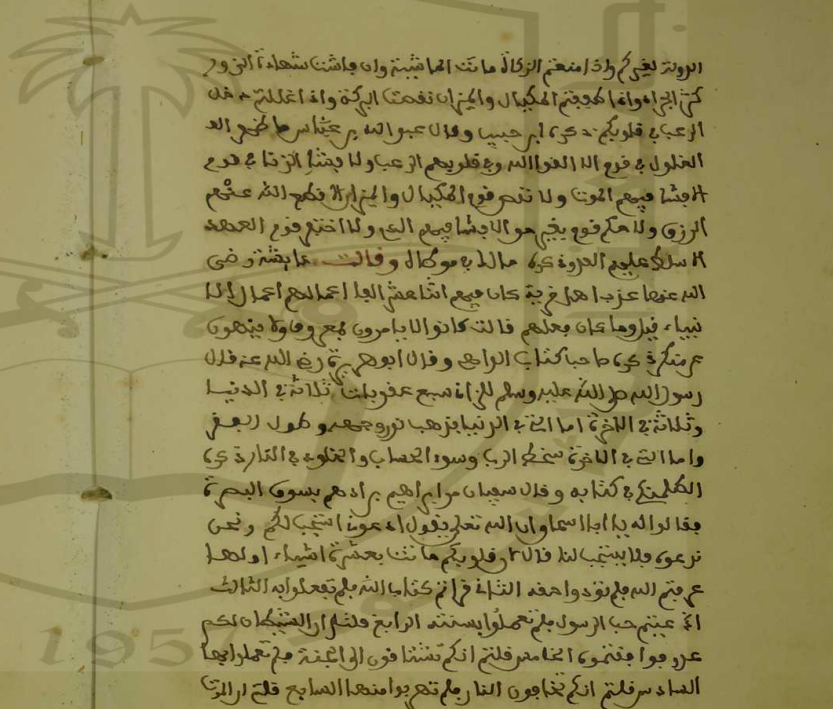 الدولة لغيركم واذا منعتم الزكاة ماتت الماشية وان فاشت شهادة الزور
كثر الجراد واذا طففتم المكيال والميزان نفصت البركة واذا غللتم دخل
الرعب في قلوبكم ذكره ابن حبيب وقال عبد الله بن عباس ما ظهر الـ
الغلول في قوم الا القى الله في قلوبهم الرعب ولا فشا الزنا في قوم
الا فشا فيهم الموت ولا نقص قوم المكيال والميزان الا قطع الله عنهم
الرزق ولا حكم قوم بغير حق الا فشا فيهم الدم ولا اختر قوم العهد
الا سلط عليهم العدو ذكره مالك في موطاه وقالت عايشة رضي
الله عنها عذب اهل قرية كان فيهم اثنا عشر الفا اعمالهم اعمال الا
نبياء قيل وما كان فعلهم قالت كانوا لا يامرون بمعروف ولا ينهون
عن منكر ذكره صاحب كتاب الراحي وقال ابو هريرة رضي الله عنه قال
رسول الله صلى الله عليه وسلم للزناة سبع عقوبات ثلاثة في الدنيا
وثلاثة في الاخرة اما التي في الدنيا يذهب نور وجهه وطول الفقر
واما التي في الاخرة سخط الرب وسوء الحساب والخلود في النار ذكره
في كتابه وقال سفيان مر ابراهيم بن ادهم بسوق البصرة
فقالوا له يا ابا اسحاق ان الله تعالى يقول ادعوني استجب لكم ونحن
ندعوه فلا يستجب لنا قال لان قلوبكم ماتت بعشرة اشياء اولها
عرفتم الله فلم تؤدوا حقه الثاني قراتم كتاب الله فلم تعملوا به الثالث
ادعيتم حب الرسول فلم تعملوا بسنته الرابع قلتم ان الشيطان لكم
عدو فوافقتموه الخامس قلتم انكم تشتاقون الى الجنة فلم تعملوا لها
السادس قلتم انكم تخافون النار فلم تهربوا منها السابع قلتم ان الموت
1957